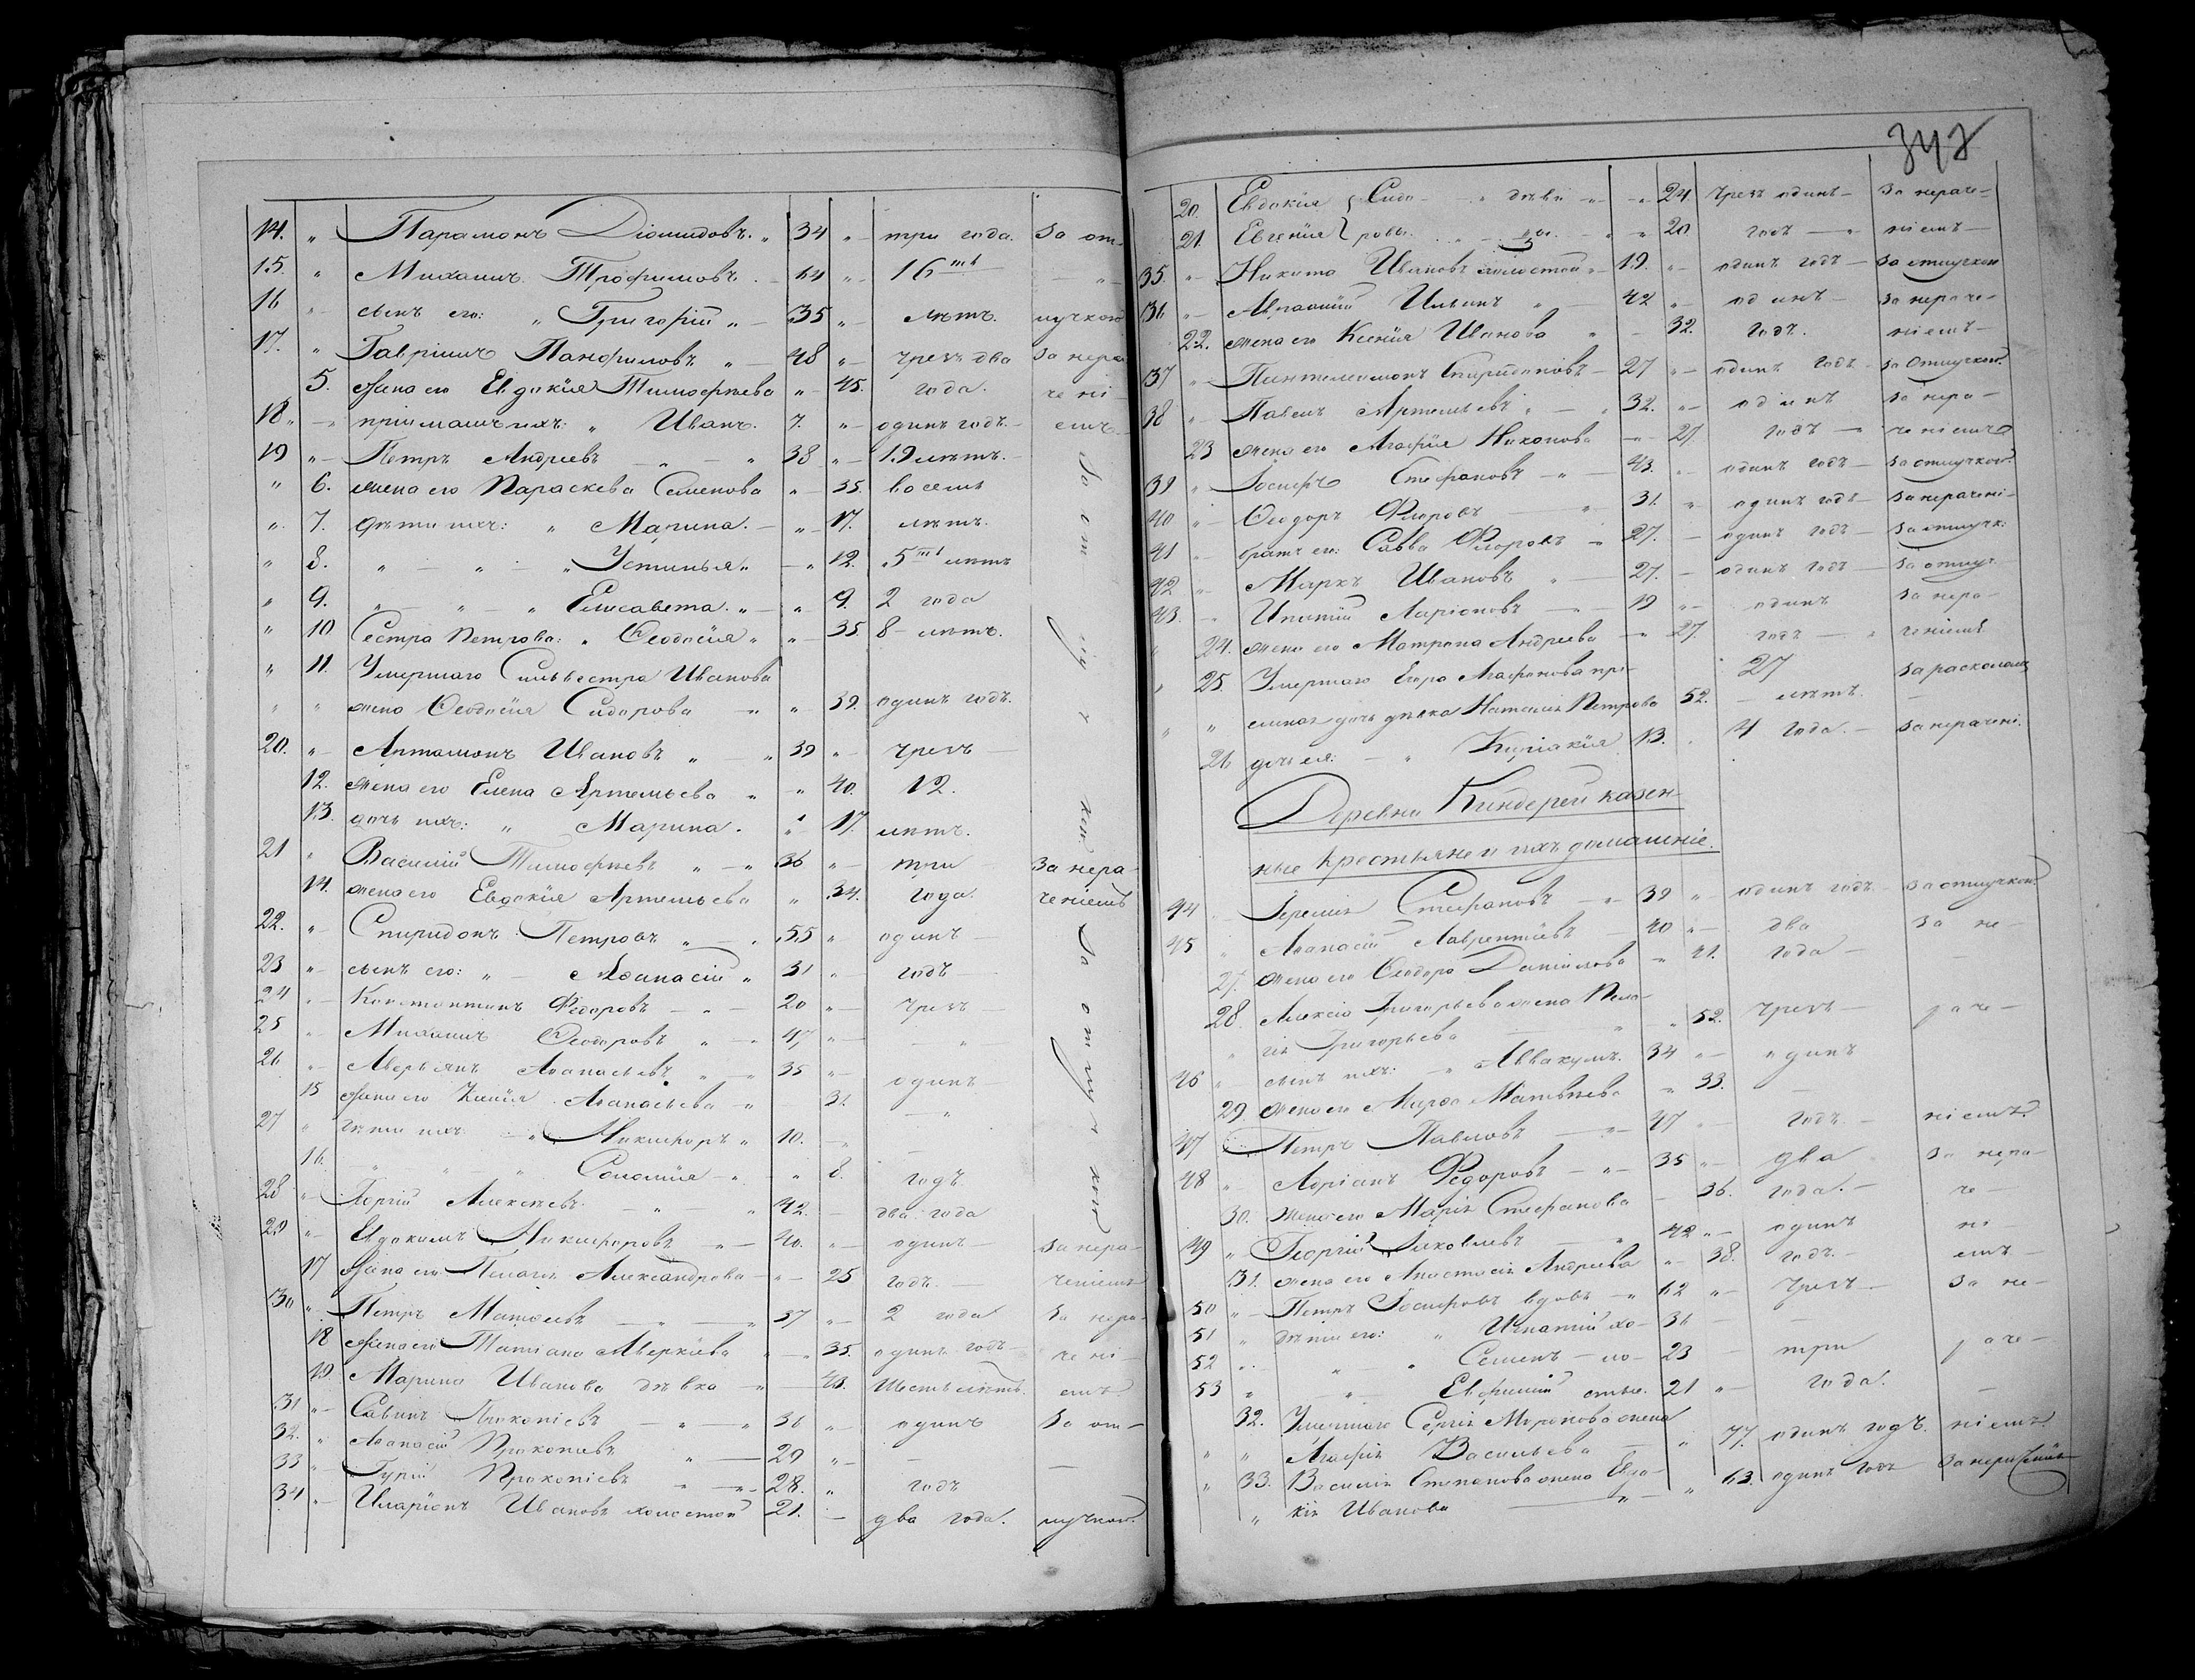 14. „ Парамонъ Діомидовъ. „ 34 „ три года. За от-
15. „ Михаилъ Трофимовъ. 64 „ 16ть „
16 „ сынъ его: „ Григорій „ 35 „ лѣтъ. лучкою
17. „ Гавріилъ Панфиловъ „ 48 „ чрезъ два За нера
5. Жена его Евдокія Тимофѣева „ 45. года. чені
18 „ пріимашъ ихъ: „ Иванъ. 7. „ одинъ годъ. емъ.
19 „ Петръ Андреевъ „ „ 38 „ 19 лѣтъ.
„ 6. жена его Параскева Семенова „ 35. восемь
„ 7. дѣти ихъ: „ Марина. „ 17. лѣтъ.
„ 8. „ „ „ Устинья „ „ 12. 5ть лѣтъ
„ 9. „ „ „ Елисавета. „ „ 9. 2 года
„ 10 Сестра Петрова: „ Ѳеодосія „ „ 35. 8 лѣтъ.
„ 11. Умершаго Сильвестра Иванова
„ „ жена Ѳеодосія Сидорова „ „ 39. одинъ годъ.
20. „ Артамонъ Ивановъ „ „ 39 „ чрезъ
12. жена его Елена Артемьева „ „ 40. 12.
13. дочь ихъ: „ Марина. „ 17. лѣтъ.
За отлучкою
21 „ Василій Тимофѣевъ „ „ 36 „ три За нера-
14. жена его Евдокія Артемьева „ 34. года. ченіемъ
22. „ Спиридонъ Петровъ „ „ 55 „ одинъ
23 „ сынъ его: „ Аѳанасій „ 31 „ годъ
24 „ Константинъ Ѳедоровъ „ 20 „ чрезъ
25 „ Михаилъ Ѳеодоровъ „ 47 „ „
26 „ Аверьянъ Аѳанасьевъ „ „ 35 „ одинъ
15 Жена его Аѳанасьева „ 31. „
27 „ дѣти ихъ: „ Никифоръ „ 10. „
16. „ „ „ Соломія „ „ 8. годъ.
28 „ Георгій Алексѣевъ „ „ 42. два года
29 „ Евдокимъ Никифоровъ „ 40. „ одинъ За нера-
17 Жена его Пелагія Александрова „ 25 годъ. ченіемъ
За отлучкою
30 „ Петръ Матѳеевъ „ „ 37 „ 2 года За нера-
18 Жена его Татіана Аверкіева „ 35. одинъ годъ чені-
19 Марина Иванова дѣвка „ 45. Шесть лѣтъ. емъ
31 „ Савинъ Прокопіевъ „ „ 36 „ одинъ За от-
32. „ Аѳанасій Прокопіевъ „ 29 „
33 „ Гурій Прокопіевъ „ „ 28. „ годъ
34 „ Иларіонъ Ивановъ холостой 21. два года. лучкою.
20. Евдокія } Сидо- „ дѣви- „ „ 24. чрезъ одинъ За нераче-
21. Евгенія } ровы. „ цы. „ „ 20. годъ ніемъ
35. „ Никита Ивановъ холостой „ 19. „ одинъ годъ За отлучкою
36 „ Авраамій Ильинъ „ 42 „ одинъ За нераче-
22. жена его Ксенія Иванова „ 32. годъ. ніемъ
37 „ Пантелеимонъ Спиридоновъ 27 „ одинъ годъ За отлучкою.
38 „ Павелъ Артемьевъ „ „ 32. „ одинъ За нера-
23 жена его Агафія Никонова „ 27 годъ ченіемъ
39 „ Іосифъ Стефановъ „ 43. „ одинъ годъ За отлучкой.
40 „ Ѳеодоръ Флоровъ „ 31. „ одинъ годъ За нерачені-
41 „ братъ его: Савва Флоровъ „ 27. одинъ годъ За отлучк:
42 „ Маркъ Ивановъ „ 27. одинъ годъ За отлуч.
43. „ Ипатій Ларіоновъ „ 19 „ одинъ За нера-
24. жена его Матрона Андреева „ 27. годъ ченіемъ
25. Умершаго Егора Агафонова прі- 27 За расколомъ
„ „ емная дочь дѣвка Наталія Петрова 52. лѣтъ.
26 дочь ея: „ Киріакія 13. 4 года. За нерачені.
Деревни Киндереи казен-
ные крестьяне и ихъ домашніе.
44 „ Іеремія Стефановъ „ 39 „ одинъ годъ За отлучкою.
45 „ Аѳанасій Лаврентіевъ 40 „ два За не-
27. жена его Ѳеодора Даніилова „ 41. года
28. Алексія Григорьева жена Пела-
„ гія Григорьева „ „ 52. чрезъ раче-
46 „ сынъ ихъ: „ Аввакумъ. 34 „ одинъ
29. жена его Марѳа Матвѣева „ 33.
47 „ Петръ Павловъ „ 47 „ годъ. ніемъ.
48 „ Адріанъ Ѳедоровъ „ 35 „ два За нера-
30. жена его Марія Стефанова 36. года. че-
49 „ Георгій Яковлевъ „ 42 „ одинъ ні
31. жена его Анастасія Андреева „ 38. годъ. емъ
50 „ Петръ Іосифовъ вдовъ „ 62 „ чрезъ За не-
51 „ дѣти его: „ Игнатій хо- 36
52 „ „ „ Семенъ ло- 23 три раче-
53 „ „ Евфимій стые. 21 „ года.
32. Умершаго Сергія Миронова жена
„ „ Агафія Васильева „ 77. одинъ годъ. ніемъ.
„ 33. Василія Степанова жена Евдо- „ 63. одинъ годъ За нераченіемъ
„ кія Иванова „